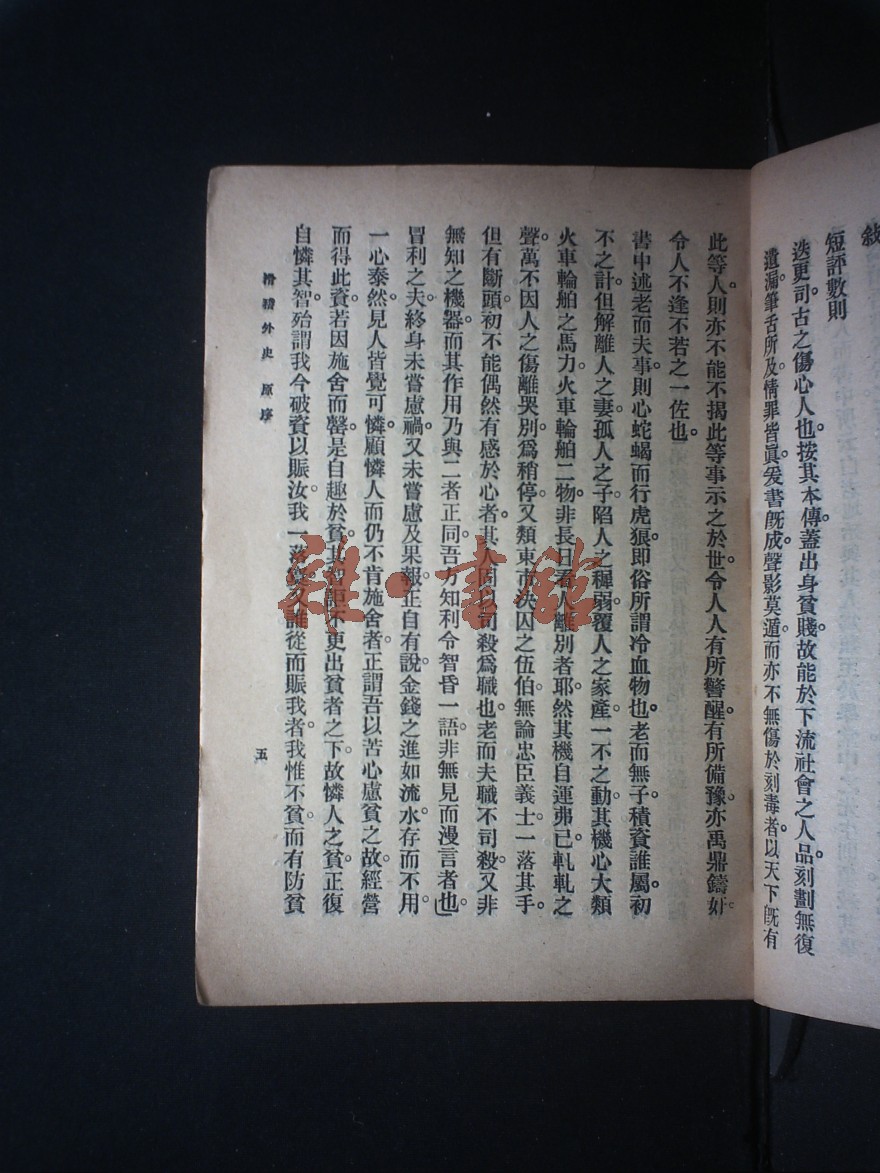 敍
短評數則
迭更司古之傷心人也。按其本傳。蓋出身貧賤。故能於下流社會之人品。刻劃無復
遺漏。筆舌所及。情罪皆眞。爰書旣成。聲影莫遁。而亦不無傷於刻毒者。以天下旣有
此等人。則亦不能不揭此等事。示之於世。令人人有所警醒。有所備豫。亦禹鼎鑄奸。
令人不逢不若之一佐也。
書中述老而夫事。則心蛇蝎而行虎狼。卽俗所謂冷血物也。老而無子。積資誰屬。初
不之計。但解離人之妻。孤人之子。陷人之穉弱。覆人之家產。一不之動。其機心大類
火車輪舶之馬力。火車輪舶二物。非長日看人離別者耶。然其機自運弗已。軋軋之
聲。萬不因人之傷離哭別。爲稍停。又類東市決囚之伍伯。無論忠臣義士。一落其手。
但有斷頭。初不能偶然有感於心者。其人固以司殺爲職也。老而夫職不司殺。又非
無知之機器。而其作用乃與二者正同。吾方知利令智昏一語。非無見而漫言者也。
冒利之夫。終身未嘗慮禍。又未嘗慮及果報。正自有說。金錢之進如流水。存而不用。
一心泰然。見人皆覺可憐。顧憐人而仍不肯施舍者。正謂吾以苦心慮貧之故。經營
而得此資。若因施舍而罄。是自趣於貧。其智詎不更出貧者之下。故憐人之貧。正復
自憐其智。殆謂我今破資以賑汝。我一落魄。又誰從而賑我者。我惟不貧。而有防貧
滑稽外史 原序
五
雜·書館